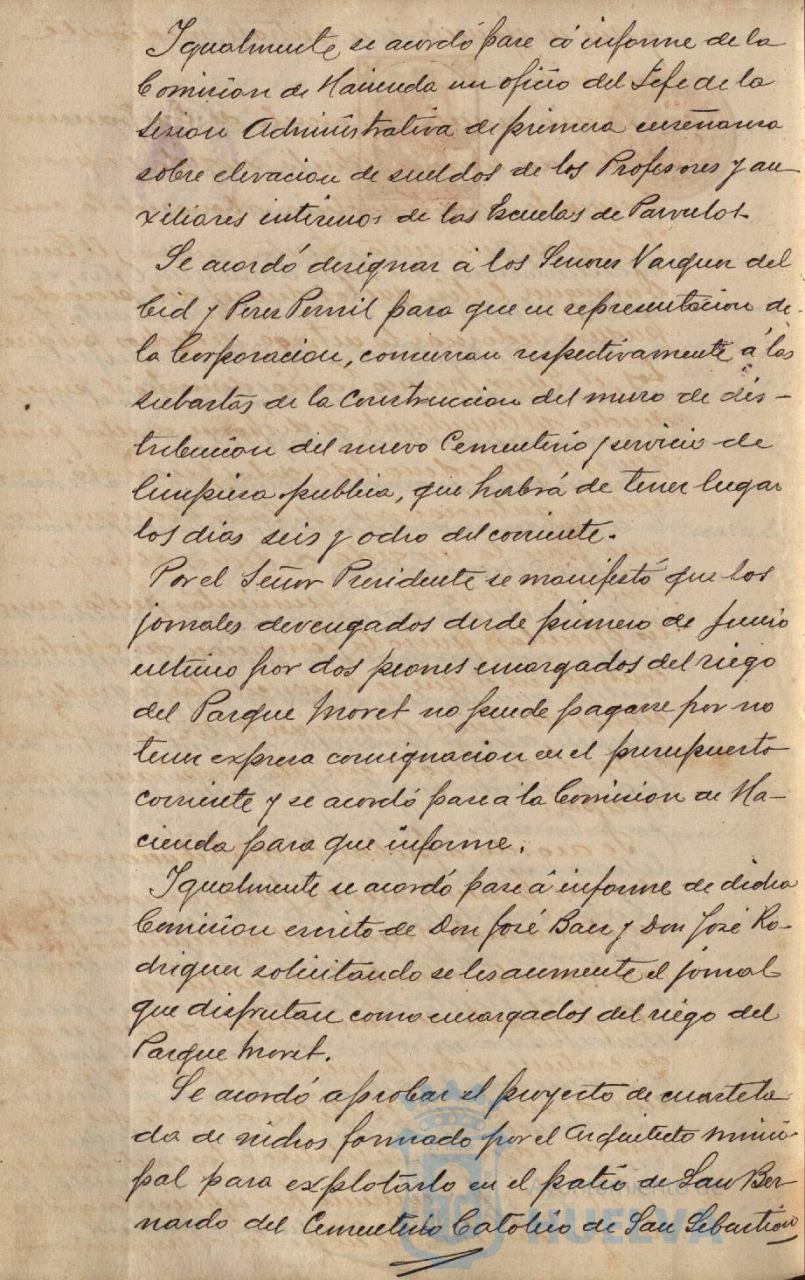 Igualmente se acordó pase á informe de la
Comision de Hacienda un oficio del Jefe de la
Sesion Administrativa de primera enseñanza
sobre elevacion de sueldos de los Profesores y au-
xiliares interinos de las Escuelas de Parvulos.
Se acordó designar á los Señores Vazquez del
Cid y Perez Pernil para que en representacion de
la Corporacion, concurran respectivamente á las
subastas de la Construccion del muro de dis-
tribucion del nuevo Cementerio y servicio de
limpieza publica, que habrá de tener lugar
los dias seis y ocho del corriente.
Por el Señor Presidente se manifestó que los
jornales devengados desde primero de Junio
ultimo por dos peones encargados del riego
del Parque Moret no puede pagarse por no
tener expresa consignacion en el presupuesto
corriente y se acordó pase á la Comision de Ha-
cienda para que informe.
Igualmente se acordó pase á informe de dicha
Comision escrito de Don José Baez y Don José Ro-
driguez solicitando se les aumente el jornal
que disfrutan como encargados del riego del
Parque Moret.
Se acordó aprobar el proyecto de cuartela-
da de nichos formado por el Arquitecto muni-
pal para explotarlo en el patio de San Ber-
nardo del Cementerio Catolico de San Sebastian
HUELVA